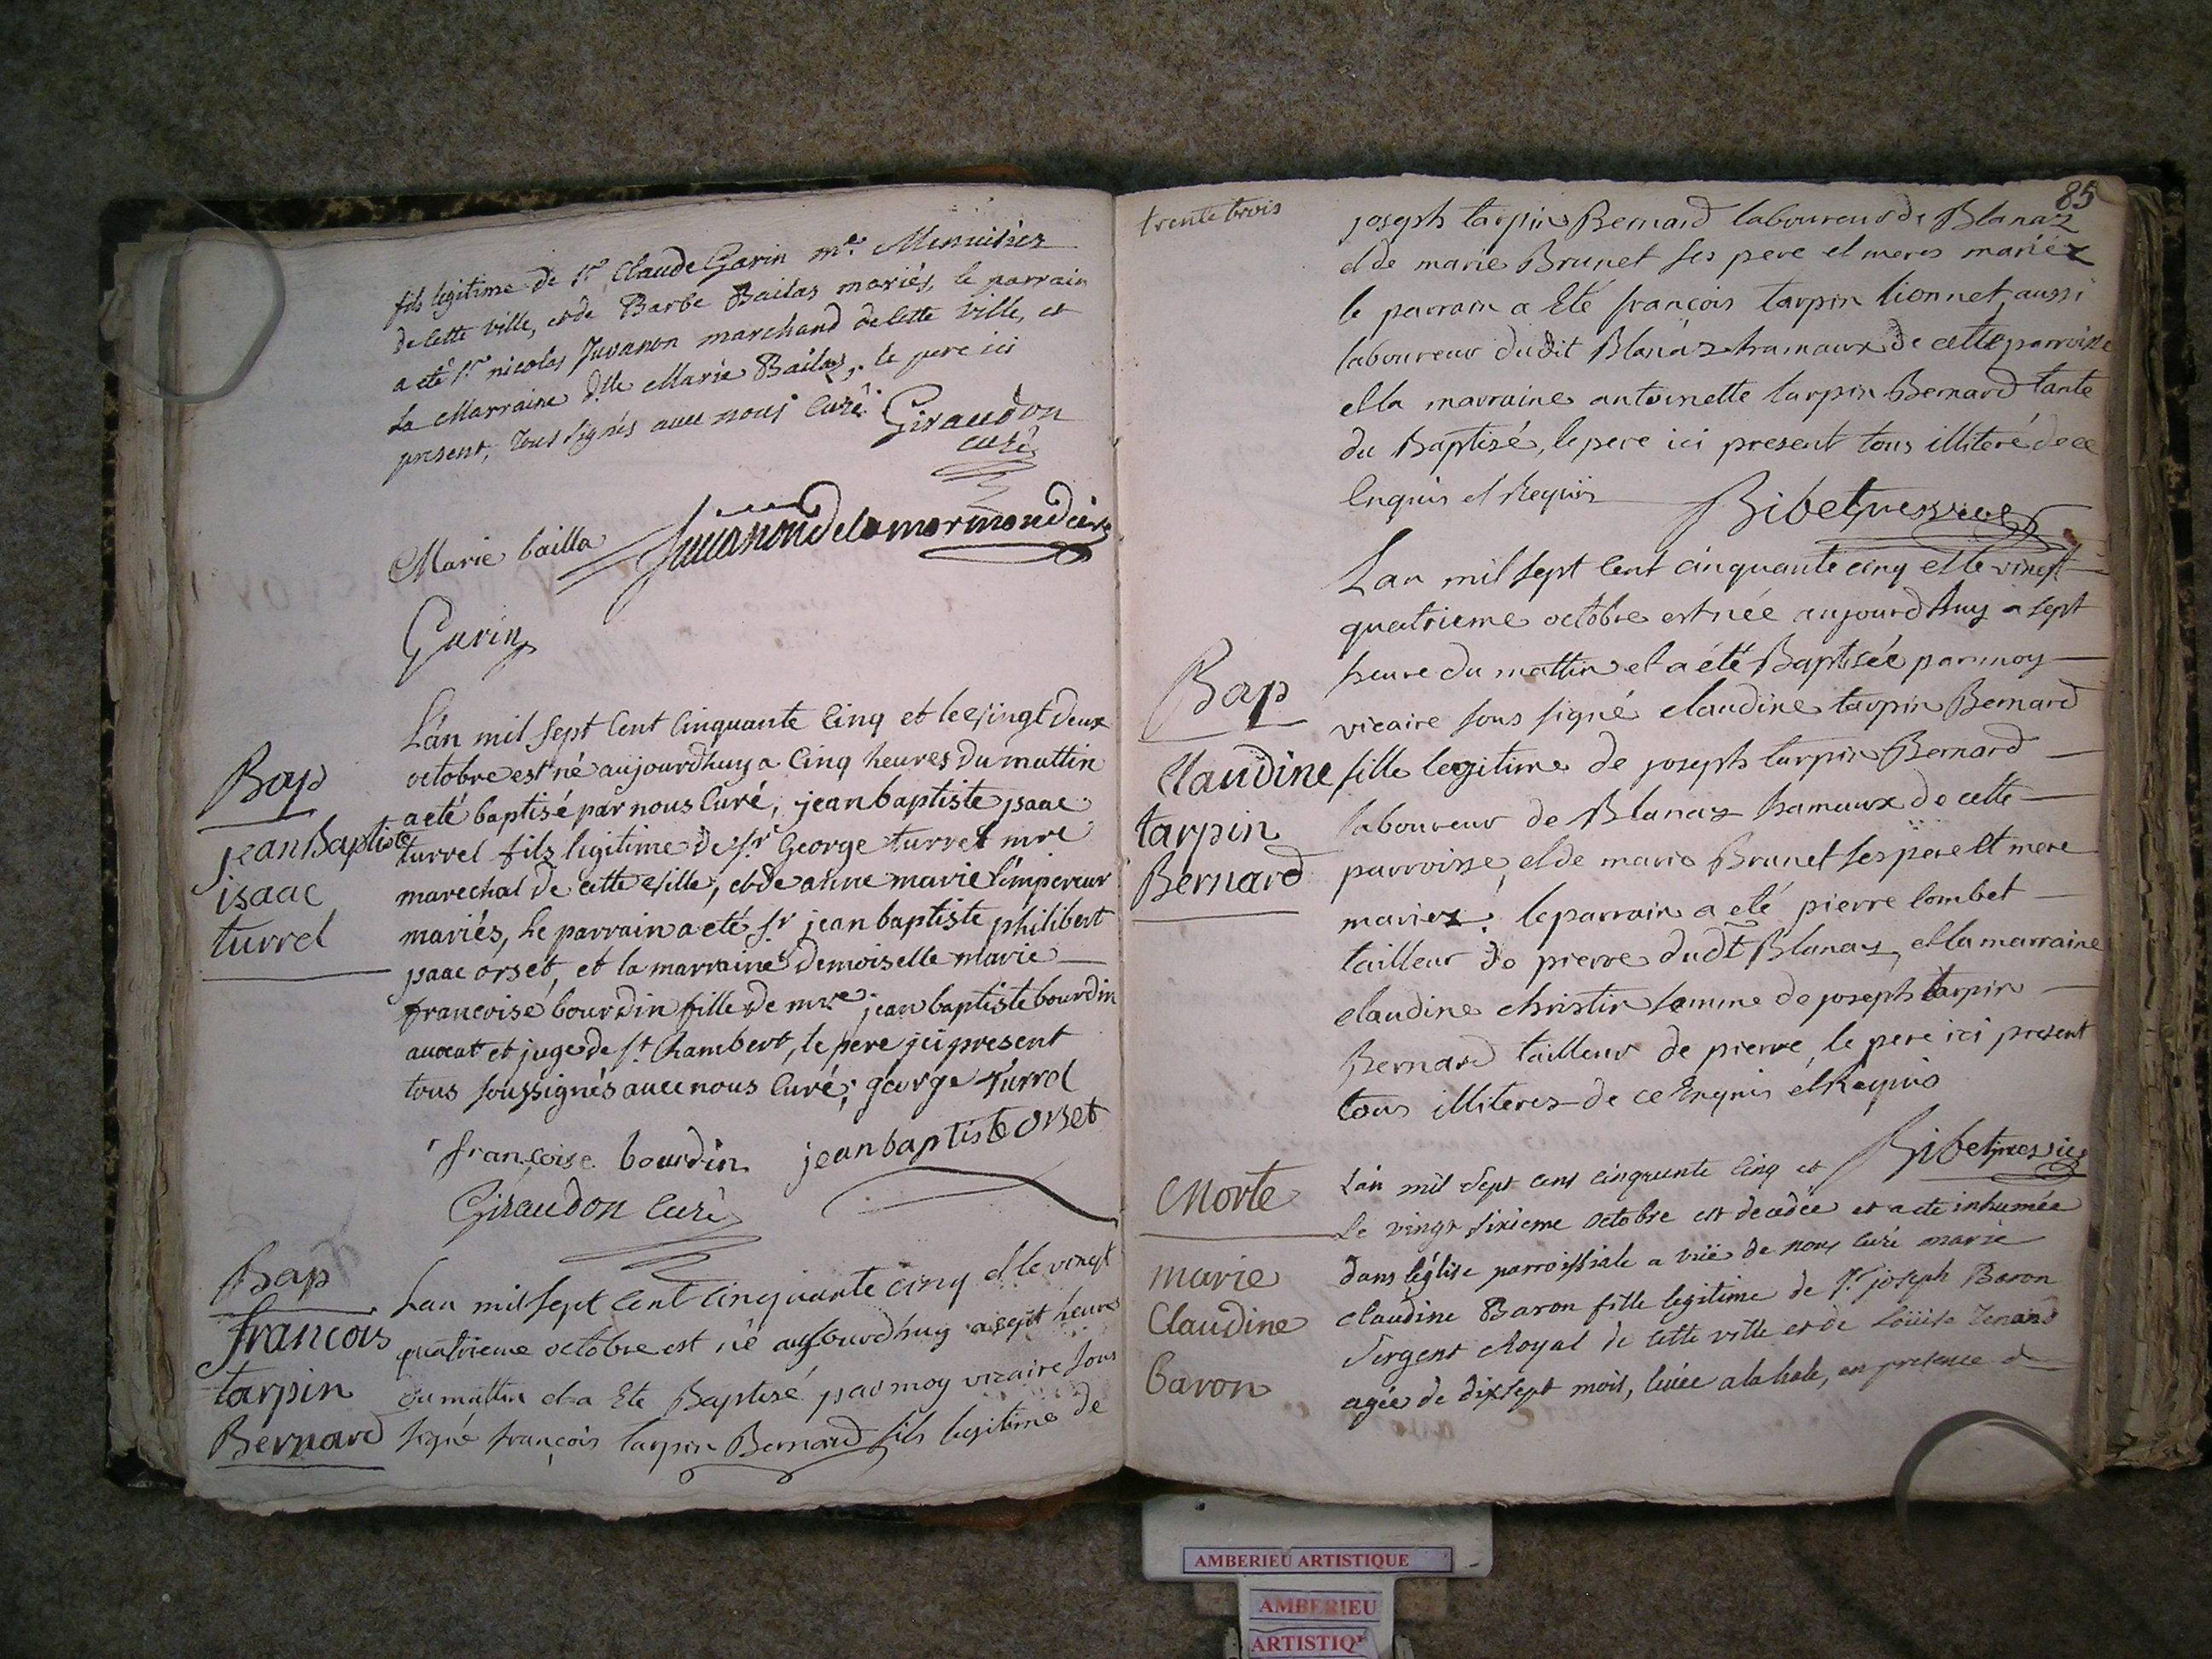 fils legitime de Sr. Claude Garin me. Menuisier
de cette ville, et de Barbe Bailas mariés, le parrain
a eté Sr nicolas Juvanon marchand de cette ville, et
La Marraine Dlle Marie Bailas, le pere ici
present, tous signés avec nous Curé. Giraudon
curé
Marie bailla Juvanon de la mormondiere
Garin
Bap
jean Baptiste
isaac
turrel
L'an mil sept cent cinquante cinq et le vingt deux
octobre est né aujourdhuy a cinq heures du mattin
a eté baptisé par nous Curé, jean baptiste ysaac
turrel fils ligitime de sr George turrel mre
marechal de cette ville, et de anne marie l'impereur
mariés, Le parrain a eté sr jean baptiste philibert
ysaac orset, et la marraine Demoiselle marie
francoise bourdin fille de mre jean baptiste bourdin
avocat et juge de St. Rambert, le pere jci present
tous soussignés avec nous Curé; george turrel
françoise bourdin jean baptiste orset
Giraudon Curé
Bap
francois
tarpin
Bernard
Lan mil sept cent cinquante cinq et le vingt
quatrieme octobre est né aujourdhuy a sept heures
du mattin et a Ete Baptisé par moy vicaire sous
signé françois tarpin Bernard fils legitime de
trente trois
85
joseph tarpin Bernard laboureur de Blanaz
et de marie Brunet ses pere et meres mariez
le parrain a Eté françois tarpin lionnet, aussi
laboureur dudit Blanaz hamaux de cette parroisse
et la marraine antoinette tarpin Bernard tante
du Baptisé, le pere ici present tous illiteré de ce
Enquis et Requis
Bap
Claudine
tarpin
Bernard
Lan mil sept Cent cinquante cinq et le vingt
quatrieme octobre est née aujourdhuy a sept
heure du mattin et a été Baptisée par moy
vicaire sous signé claudine tarpin Bernard
fille legitime de joseph tarpin Bernard
laboureur de Blanaz hamaux de cette
parroisse, et de marie Brunet ses pere et mere
mariez. le parrain a eté pierre combet
tailleur de pierre dudt Blanaz, et la marraine
claudine christin femme de joseph tarpin
Bernard tailleur de pierre, le pere ici present
tous illiterez de ce Enquis et Requis
Morte
marie
Claudine
baron
L'an mil sept cent cinquante cinq et
Le vingt sixieme octobre est decedée et a eté inhumée
dans l'église parroissiale a vüe de nous curé marie
claudine Baron fille legitime de Sr joseph Baron
Sergent Royal de cette ville et de Loüise Tenand
agée de dix sept mois, levée a la hale, en presence de
AMBERIEU ARTISTIQUE
AMBERIEU
ARTISTIQU